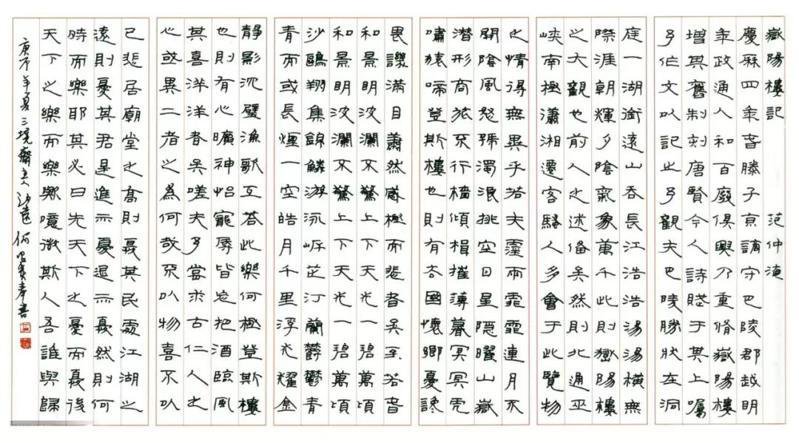 嶽陽樓記 范仲淹
慶曆四年春滕子京謫守巴陵郡越明
年政通人和百廢俱興乃重脩嶽陽樓
增其舊制刻唐賢今人詩賦于其上囑
予作文以記之予觀夫巴陵勝狀在洞
庭一湖銜遠山吞長江浩浩湯湯橫無
際涯朝暉夕陰氣象萬千此則嶽陽樓
之大觀也前人之述備矣然則北通巫
峽南極瀟湘遷客騷人多會于此覽物
之情得無異乎若夫霪雨霏霏連月不
開陰風怒號濁浪排空日星隱曜山嶽
潛形商旅不行檣傾楫摧薄暮冥冥虎
嘯猿啼登斯樓也則有去國懷鄉憂讒
畏譏滿目蕭然感極而悲者矣至若春
和景明波瀾不驚上下天光一碧萬頃
和景明波瀾不驚上下天光一碧萬頃
沙鷗翔集錦鱗游泳岸芷汀蘭鬱鬱青
青而或長煙一空皓月千里浮光耀金
靜影沉璧漁歌互答此樂何極登斯樓
也則有心曠神怡寵辱皆忘把酒臨風
其喜洋洋者矣嗟夫予嘗求古仁人之
心或異二者之為何哉不以物喜不以
己悲居廟堂之高則憂其民處江湖之
遠則憂其君是進而憂退而憂然則何
時而樂耶其必曰先天下之憂而憂後
天下之樂而樂歟噫微斯人吾誰與歸
庚子年夏三境齋主 何 書